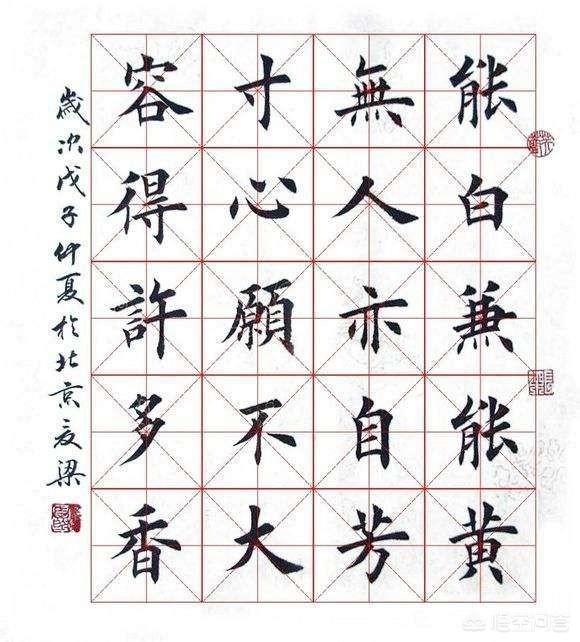 能白兼能黄
無人亦自芳
寸心願不大
容得許多香
歲次戊子仲夏於北京爰梁
悟空问答